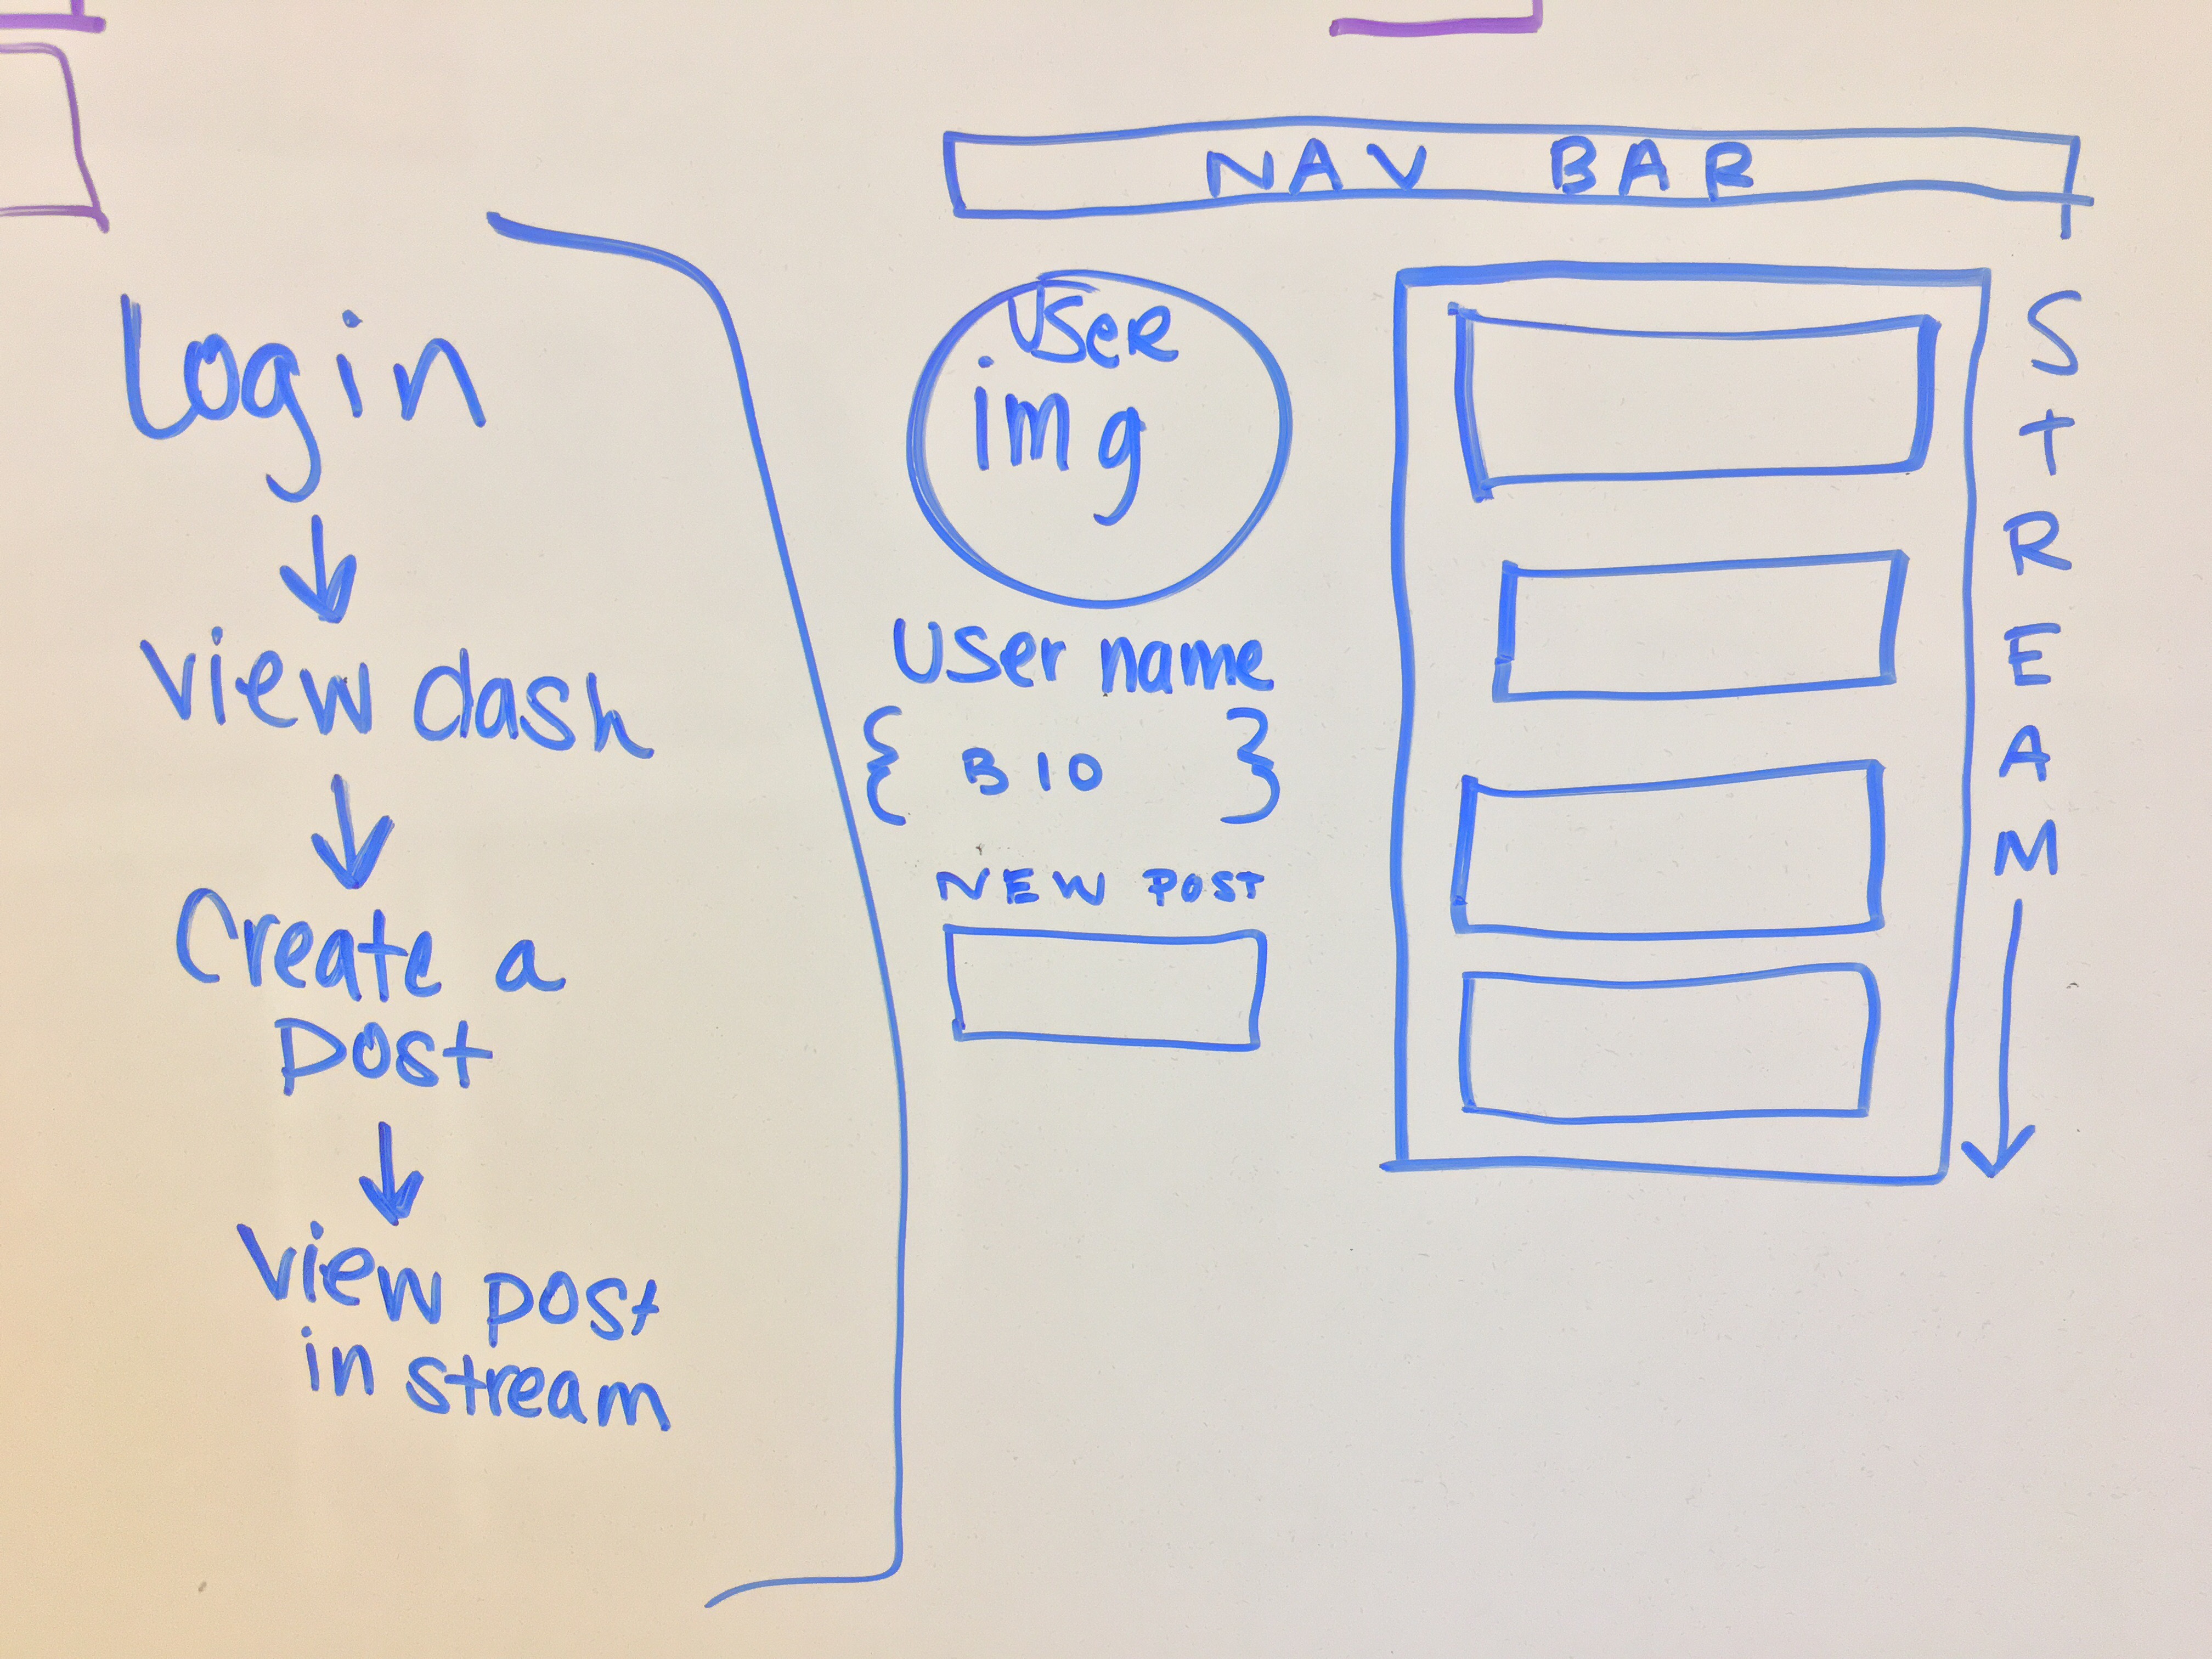 Login
view dash
Create a
post
view post
in stream
NAV BAR
User
img
User name
{ BIO }
NEW POST
STREAM